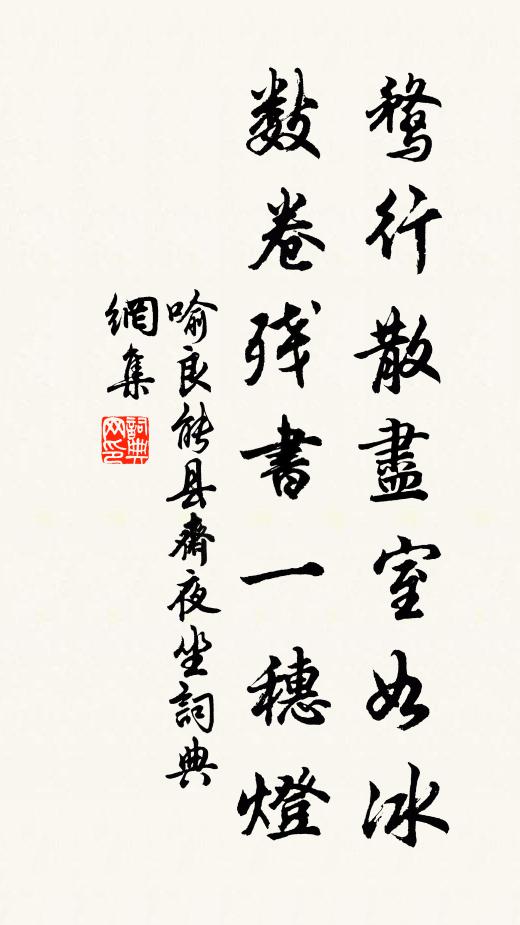 鶩行散盡室如冰
數卷残書一穗燈
喻良能县齋夜坐詞典
網集
詞典
网印